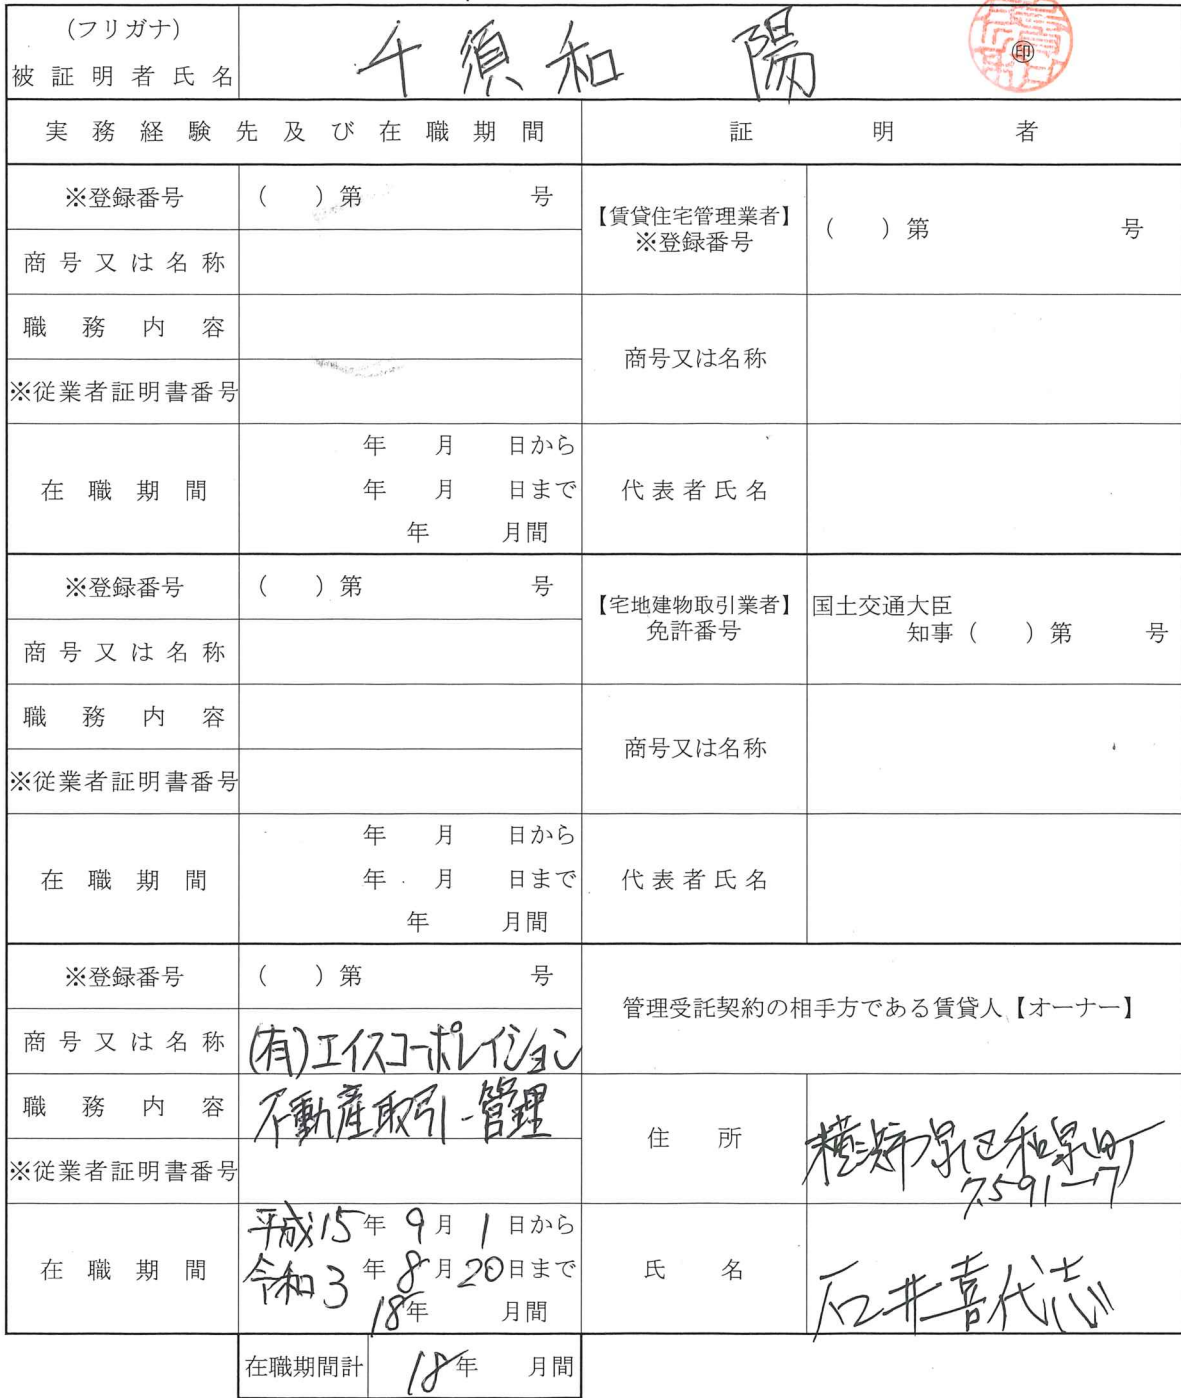 (フリガナ)
被証明者氏名 千須和 陽 ㊞
実務経験先及び在職期間 証明者
※登録番号 ( )第 号 【賃貸住宅管理業者】 ※登録番号 ( )第 号
商号又は名称
職務内容 商号又は名称
※従業者証明書番号
年 月 日から
在職期間 年 月 日まで 代表者氏名
年 月間
※登録番号 ( )第 号 【宅地建物取引業者】 免許番号 国土交通大臣 知事( )第 号
商号又は名称
職務内容 商号又は名称
※従業者証明書番号
年 月 日から
在職期間 年 月 日まで 代表者氏名
年 月間
※登録番号 ( )第 号 管理受託契約の相手方である賃貸人【オーナー】
商号又は名称 (有)エイスコーポレイション
職務内容 不動産取引-管理 住所 横浜市泉区和泉町
※従業者証明書番号 7591-17
平成15年9月1日から
在職期間 令和3年8月20日まで 氏名 石井喜代志
18年 月間
在職期間計 18年 月間